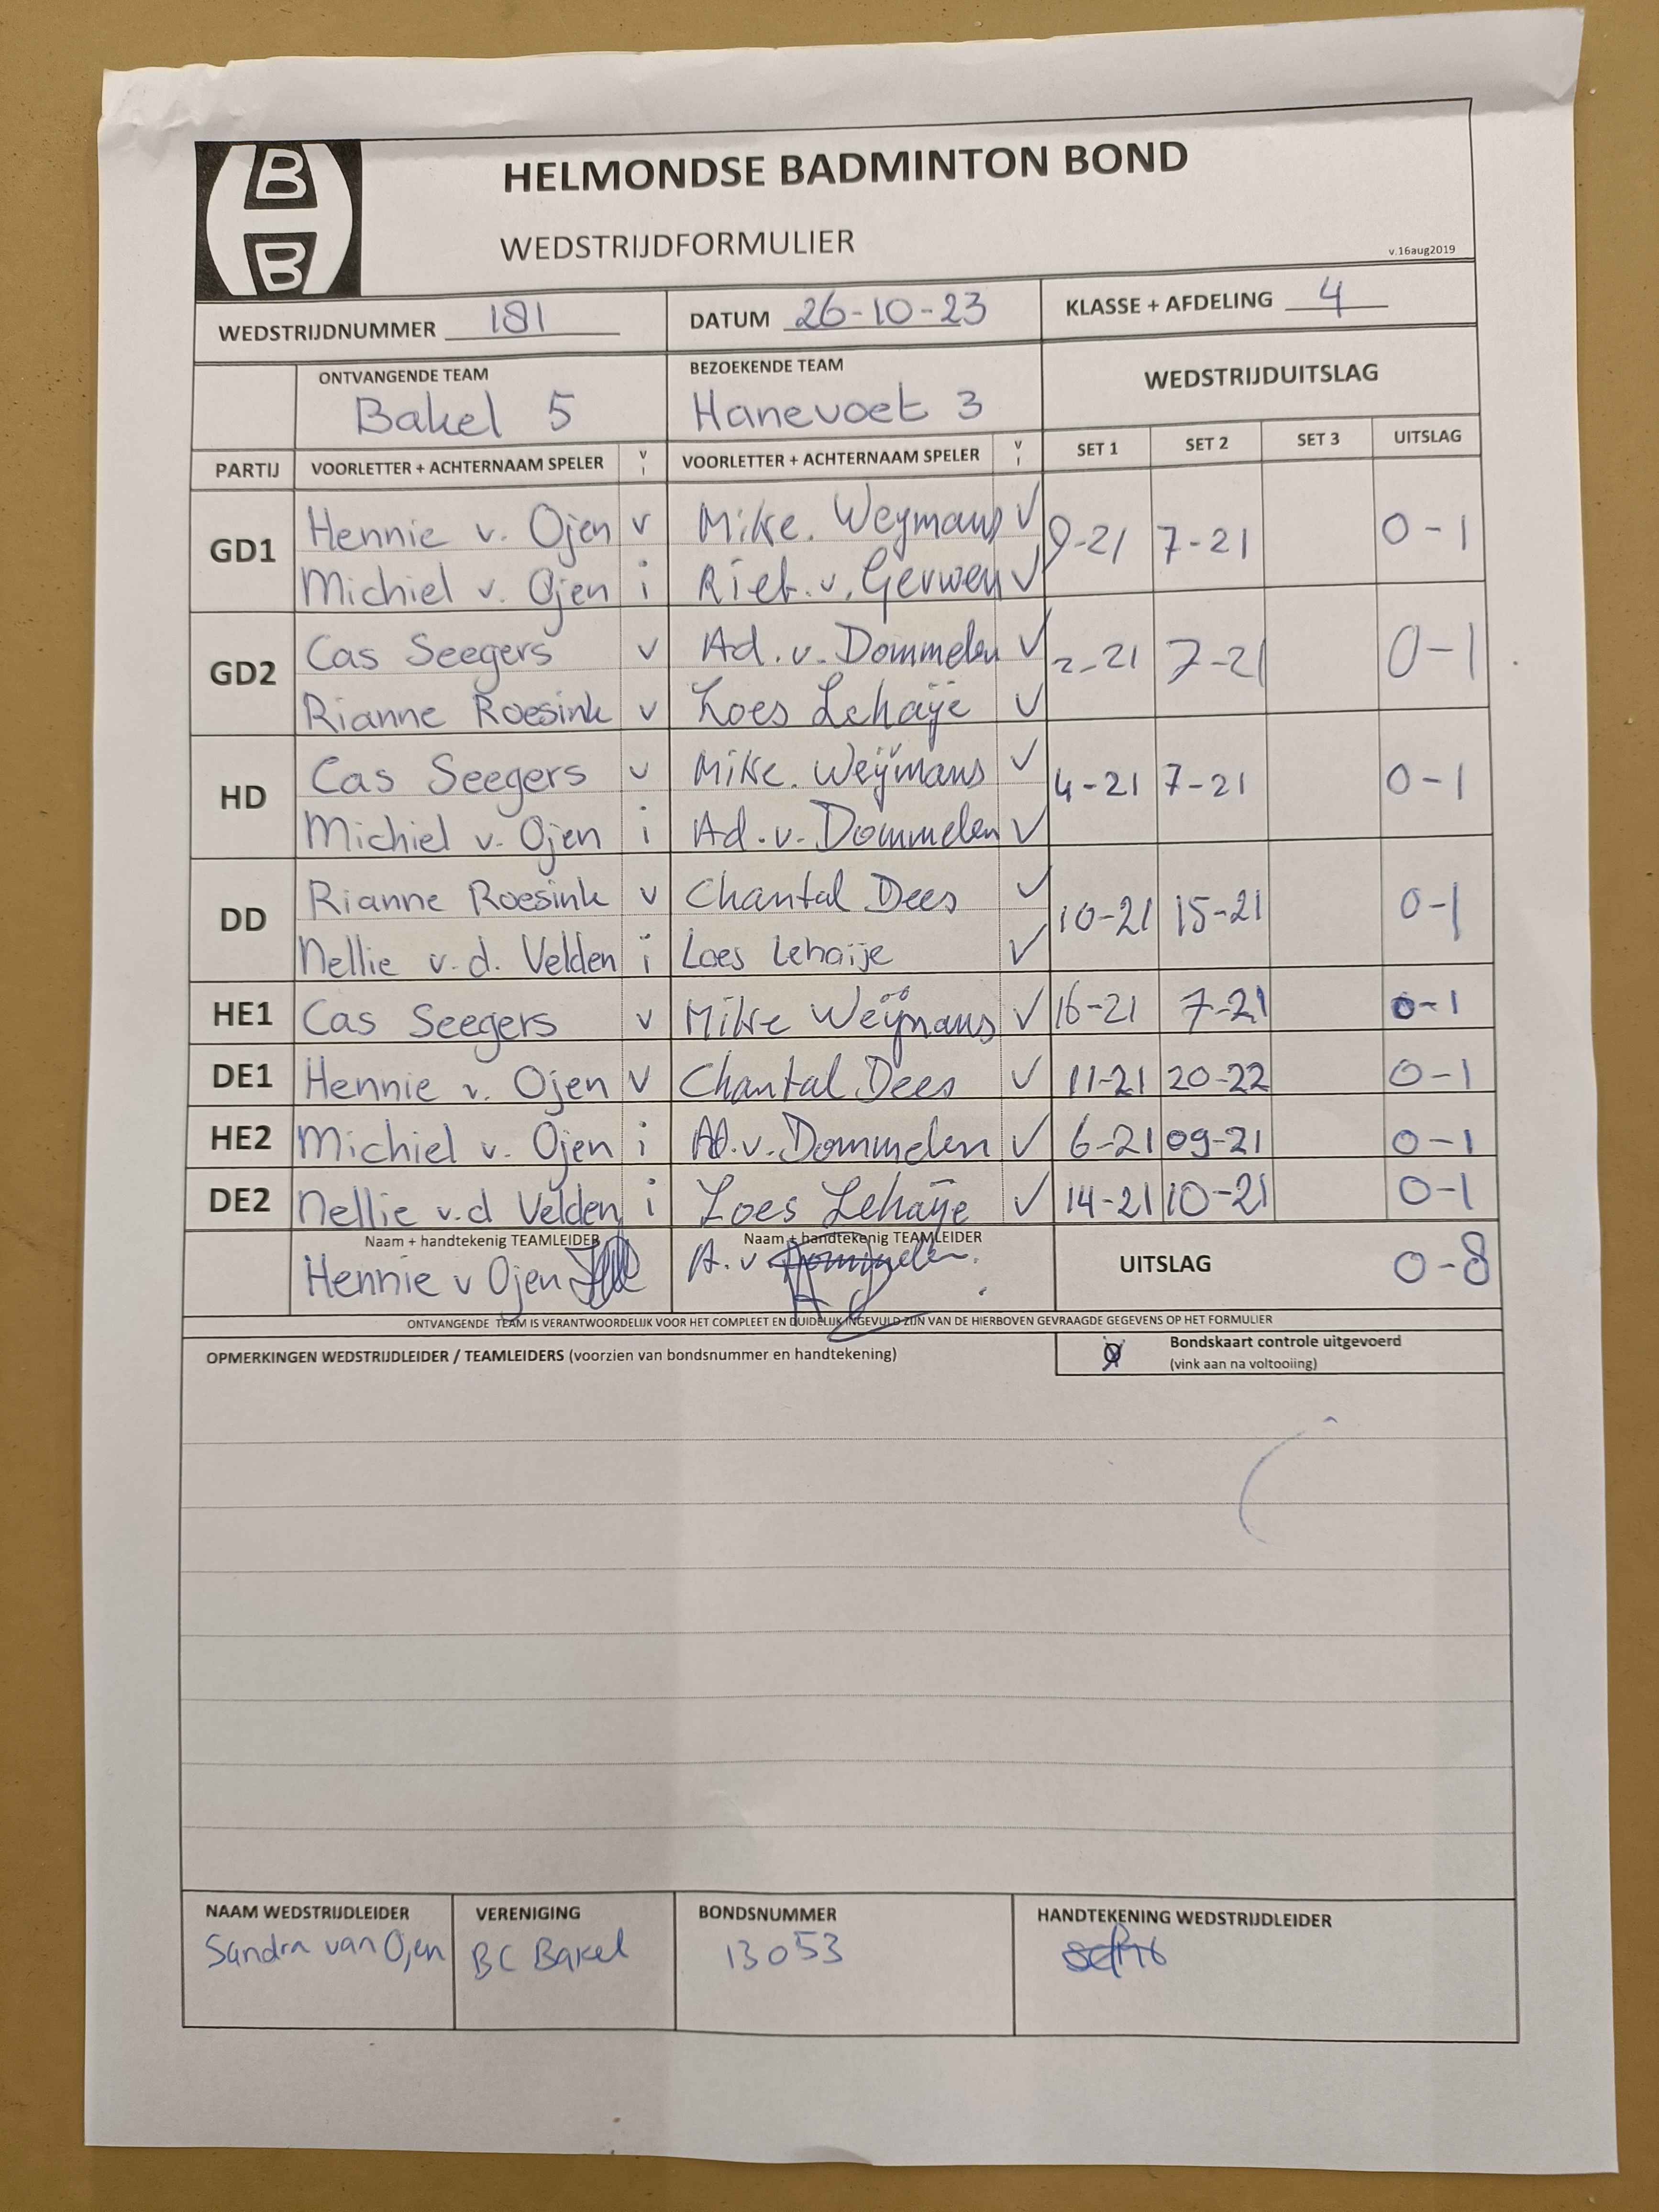 HELMONDSE BADMINTON BOND
WEDSTRIJDFORMULIER
v.16aug2019
WEDSTRIJDNUMMER 181 DATUM 26-10-23 KLASSE + AFDELING 4
ONTVANGENDE TEAM BEZOEKENDE TEAM WEDSTRIJDUITSLAG
Bakel 5 Hanevoet 3
PARTIJ VOORLETTER + ACHTERNAAM SPELER V I VOORLETTER + ACHTERNAAM SPELER V I SET 1 SET 2 SET 3 UITSLAG
GD1 Hennie v. Ojen v Mike. Weymans v 9-21 7-21 0-1
Michiel v. Ojen i Riet. v. Gerwen v
GD2 Cas Seegers v Ad. v. Dommelen v 2-21 7-21 0-1
Rianne Roesink v Loes Lehaije v
HD Cas Seegers v Mike. Weijmans v 4-21 7-21 0-1
Michiel v. Ojen i Ad. v. Dommelen v
DD Rianne Roesink v Chantal Dees v 10-21 15-21 0-1
Nellie v.d. Velden i Loes Lehaije v
HE1 Cas Seegers v Mike Weijmans v 16-21 7-21 0-1
DE1 Hennie v. Ojen v Chantal Dees v 11-21 20-22 0-1
HE2 Michiel v. Ojen i Ad. v. Dommelen v 6-21 09-21 0-1
DE2 Nellie v.d Velden i Loes Lehaije v 14-21 10-21 0-1
Naam + handtekenig TEAMLEIDER Naam + handtekenig TEAMLEIDER
Hennie v Ojen A. v Dommelen. UITSLAG 0-8
ONTVANGENDE TEAM IS VERANTWOORDELIJK VOOR HET COMPLEET EN DUIDELIJK INGEVULD ZIJN VAN DE HIERBOVEN GEVRAAGDE GEGEVENS OP HET FORMULIER
OPMERKINGEN WEDSTRIJDLEIDER / TEAMLEIDERS (voorzien van bondsnummer en handtekening)
Bondskaart controle uitgevoerd
(vink aan na voltooiing)
NAAM WEDSTRIJDLEIDER VERENIGING BONDSNUMMER HANDTEKENING WEDSTRIJDLEIDER
Sandra van Ojen BC Bakel 13053